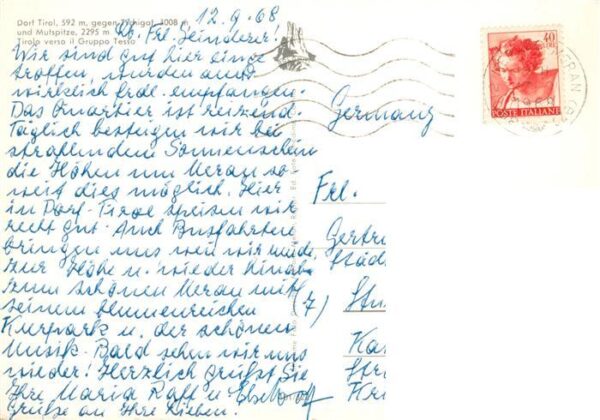 Dorf Tirol, 592 m, gegen 3008 m
und Mutspitze, 2295 m
Tirolo verso il Gruppo Tessa
12.9.68
Lb. Frl.
Wir sind gut hier einge
troffen, wurden auch
wirklich frdl. empfangen.
Das Quartier ist reizend.
Täglich besteigen wir bei
strahlendem Sonnenschein
die Höhen um Meran so-
weit dies möglich. Hier
in Dorf-Tirol speisen wir
recht gut. Auch Busfahrten
bringen uns wenn wir müde,
zur Höhe u. wieder hinab
zum schönen Meran mit
seinem blumenreichen
Kurpark u. der schönen
Musik. Bald sehen wir uns
wieder! Herzlich grüßt Sie
Ihre Maria Raff u.
Grüße an Ihre Lieben.
40
POSTE ITALIANE
MERAN
Germany
Frl.
Gertr
Städ
(7) Stu
Ka
Str
Kr